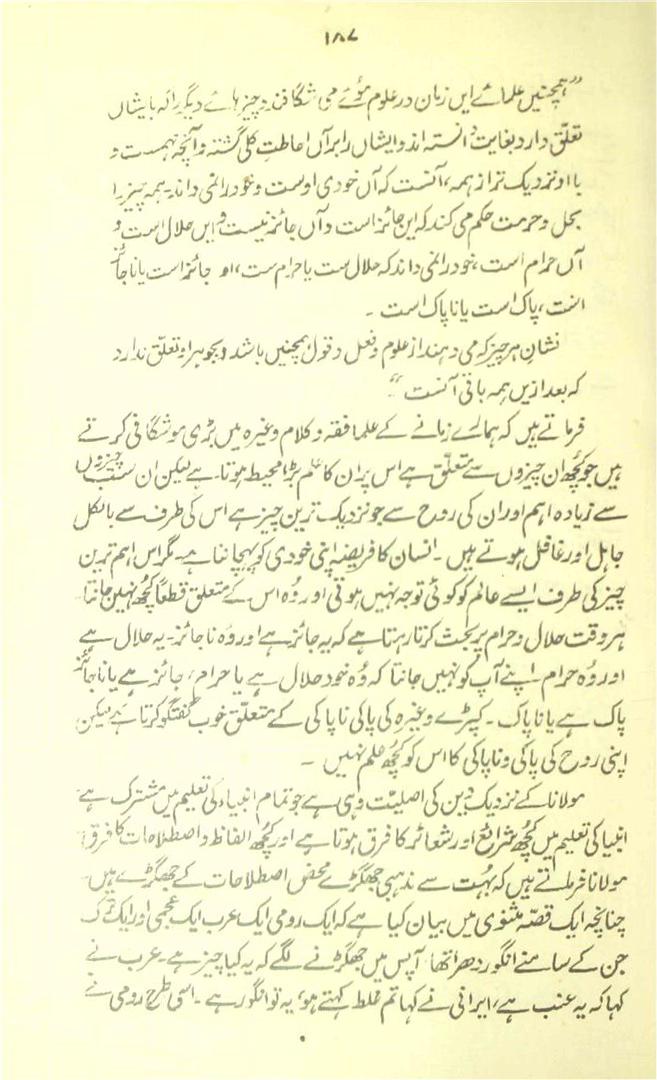 ۱۸۷
”ہمچنیں علمائے ایں زمان در علوم موئے می شگافند و چیز ہائے دیگر را کہ بایشاں
تعلّق دارد بغایت دانستہ اند و ایشاں را برآں احاطتِ کلی گشتہ و آنچہ مہمست و
با او نزدیک تر از ہمہ، آنست کہ آں خودی اوست و خود را نمی داند۔ ہمہ چیز را
بحل و حرمت حکم می کند کہ ایں جائز است و آں جائز نیست و ایں حلال است و
آں حرام است، خود را نمی داند کہ حلال ست یا حرام ست، او جائز است یا ناجائز
است، پاک است یا ناپاک است ۔
نشانِ ہر چیز کہ می دہند از علوم و فعل و قول ہمچنیں باشد و بجوہر او تعلّق ندارد
کہ بعد ازیں ہمہ باقی آنست“
فرماتے ہیں کہ ہمارے زمانے کے علما فقہ و کلام وغیرہ میں بڑی موشگافی کرتے
ہیں جو کچھ ان چیزوں سے متعلّق ہے اس پر ان کا علم بڑا محیط ہوتا ہے لیکن ان سب چیزوں
سے زیادہ اہم اور ان کی روح سے جو نزدیک ترین چیز ہے اس کی طرف سے بالکل
جاہل اور غافل ہوتے ہیں ۔ انسان کا فریضہ اپنی خودی کو پہچاننا ہے۔ مگر اس اہم ترین
چیز کی طرف ایسے عالم کو کوئی توجہ نہیں ہوتی اور وُہ اس کے متعلق قطعاً کچھ نہیں جانتا۔
ہر وقت حلال و حرام پر بحث کرتا رہتا ہے کہ یہ جائز ہے اور وُہ ناجائز۔ یہ حلال ہے
اور وُہ حرام ۔ اپنے آپ کو نہیں جانتا کہ وُہ خود حلال ہے یا حرام، جائز ہے یا ناجائز
پاک ہے یا ناپاک ۔ کپڑے وغیرہ کی پاکی ناپاکی کے متعلّق خوب گفتگو کرتا ہے لیکن
اپنی روح کی پاکی و ناپاکی کا اس کو کچھ علم نہیں ۔
مولانا کے نزدیک دین کی اصلیّت وہی ہے جو تمام انبیاء کی تعلیم میں مشترک ہے۔
انبیا کی تعلیم میں کچھ شرائع اور شعائر کا فرق ہوتا ہے اور کچھ الفاظ و اصطلاحات کا فرق۔
مولانا فرماتے ہیں کہ بہُت سے مذہبی جھگڑے محض اصطلاحات کے جھگڑے ہیں۔
چنانچہ ایک قصّہ مثنوی میں بیان کیا ہے کہ ایک رومی ایک عرب ایک عجمی اور ایک ترک
جن کے سامنے انگور دھرا تھا، آپس میں جھگڑنے لگے کہ یہ کیا چیز ہے۔ عرب نے
کہا کہ یہ عنب ہے، ایرانی نے کہا تم غلط کہتے ہو، یہ تو انگور ہے ۔ اسی طرح رومی نے